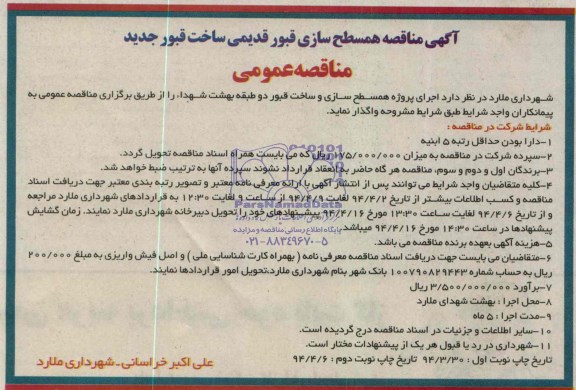 آگهی مناقصه همسطح سازی قبور قدیمی ساخت قبور جدید
مناقصه عمومی
شهرداری ملارد در نظر دارد اجرای پروژه همسطح سازی و ساخت قبور دو طبقه بهشت شهدا، را از طریق برگزاری مناقصه عمومی به
پیمانکاران واجد شرایط طبق شرایط مشروحه واگذار نماید.
شرایط شرکت در مناقصه :
۱-دارا بودن حداقل رتبه ۵ ابنیه
۲-سپرده شرکت در مناقصه به میزان ۱۷۵/۰۰۰/۰۰۰ ریال که می بایست همراه اسناد مناقصه تحویل گردد.
۳-برندگان اول و دوم و سوم، مناقصه هر گاه حاضر به انعقاد قرارداد نشوند سپرده آنها به ترتیب ضبط خواهد شد.
۴-کلیه متقاضیان واجد شرایط می توانند پس از انتشار آگهی با ارائه معرفی نامه معتبر و تصویر رتبه بندی معتبر جهت دریافت اسناد
مناقصه و کسب اطلاعات بیشتر از تاریخ ۹۴/۴/۲ لغایت ۹۴/۴/۹ از ساعت و لغایت ۱۲:۳۰ به قراردادهای شهرداری ملارد مراجعه
و از تاریخ ۹۴/۴/۶ لغایت ساعت ۱۳:۳۰ مورخ ۹۴/۴/۱۶ پیشنهادهای خود را تحویل دبیرخانه شهرداری ملارد نمایند. زمان گشایش
پیشنهادها در ساعت ۱۴:۳۰ مورخ ۹۴/۴/۱۶ میباشد.
۵-هزینه آگهی بعهده برنده مناقصه می باشد.
۶-متقاضیان می بایست جهت دریافت اسناد مناقصه معرفی نامه ( بهمراه کارت شناسایی ملی ) و اصل فیش واریزی به مبلغ ۲۰۰/۰۰۰
ریال به حساب شماره ۱۰۰۷۹۰۸۲۹۴۴۳ بانک شهر بنام شهرداری ملارد.تحویل امور قراردادها نمایند.
۷-برآورد ۳/۵۰۰/۰۰۰/۰۰۰ ریال
۸-محل اجرا : بهشت شهدای ملارد
۹-مدت اجرا : ۵ ماه
۱۰-سایر اطلاعات و جزئیات در اسناد مناقصه درج گردیده است.
۱۱-شهرداری در رد یا قبول هر یک از پیشنهادات مختار است.
تاریخ چاپ نوبت اول : ۹۴/۳/۳۰ تاریخ چاپ نوبت دوم : ۹۴/۴/۶
علی اکبر خراسانی-شهرداری ملارد
ParsNamadData
پایگاه اطلاع رسانی مناقصه و مزایده
۰۲۱-۸۸۳۴۹۶۷۰-۵